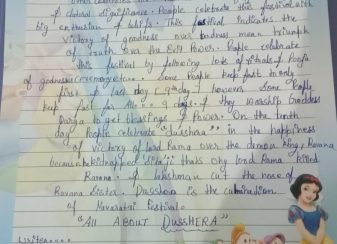 & cultural significance. People celebrate this festival with
big enthusiasm & beliefs. This festival indicates the
victory of goodness over badness mean triumph
of Truth over the Evil Power. People celebrate
this festival by following lots of rituals of Pooja
of goddess ceremony etc. Some people keep fast to only
first & last day (9th day) however some People
keep fast for all nine 9 days. & they worship Goddess
Durga to get blessings & Power. On the tenth
day People celebrate "dusshera" in the happiness
of victory of lord Rama over the demon King, Ravana
because he kidnapped Sita ji thats why lord Rama killed
Ravana. & lakshman cut the nose of
Ravana Sister. Dusshera is the culmination
of Navaratri Festival.
"All ABOUT DUSSHERA"